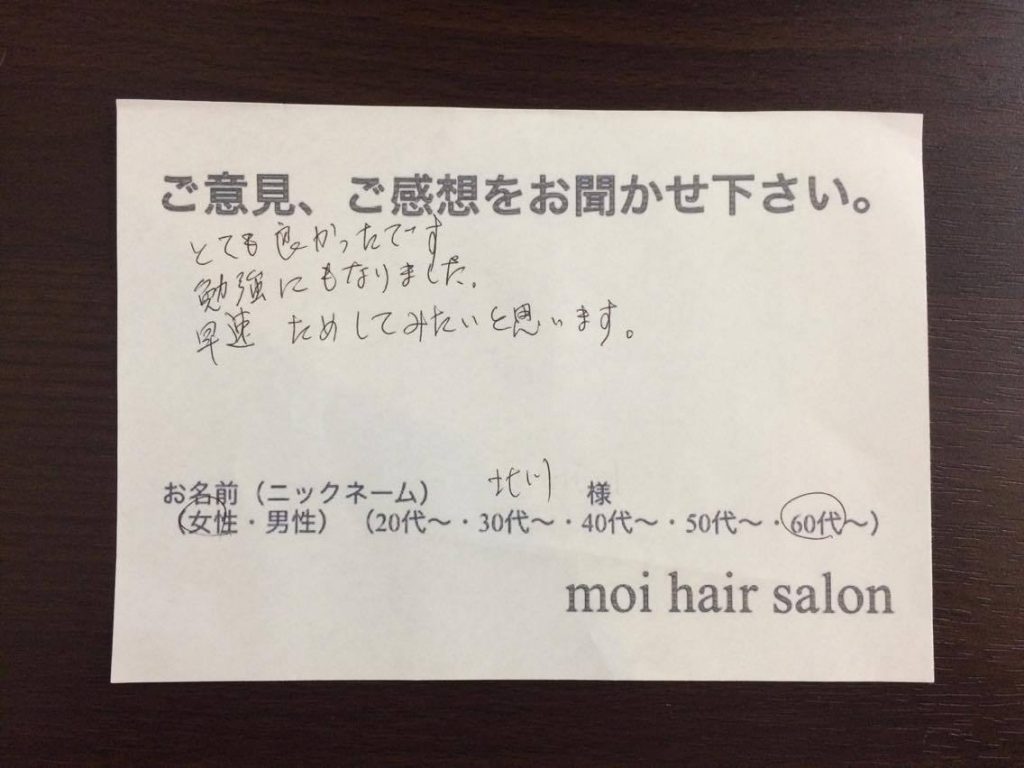 ご意見、ご感想をお聞かせ下さい。
とても良かったです
勉強にもなりました。
早速 ためしてみたいと思います。
お名前（ニックネーム） 北川 様
（女性・男性）（20代～・30代～・40代～・50代～・60代～）
moi hair salon